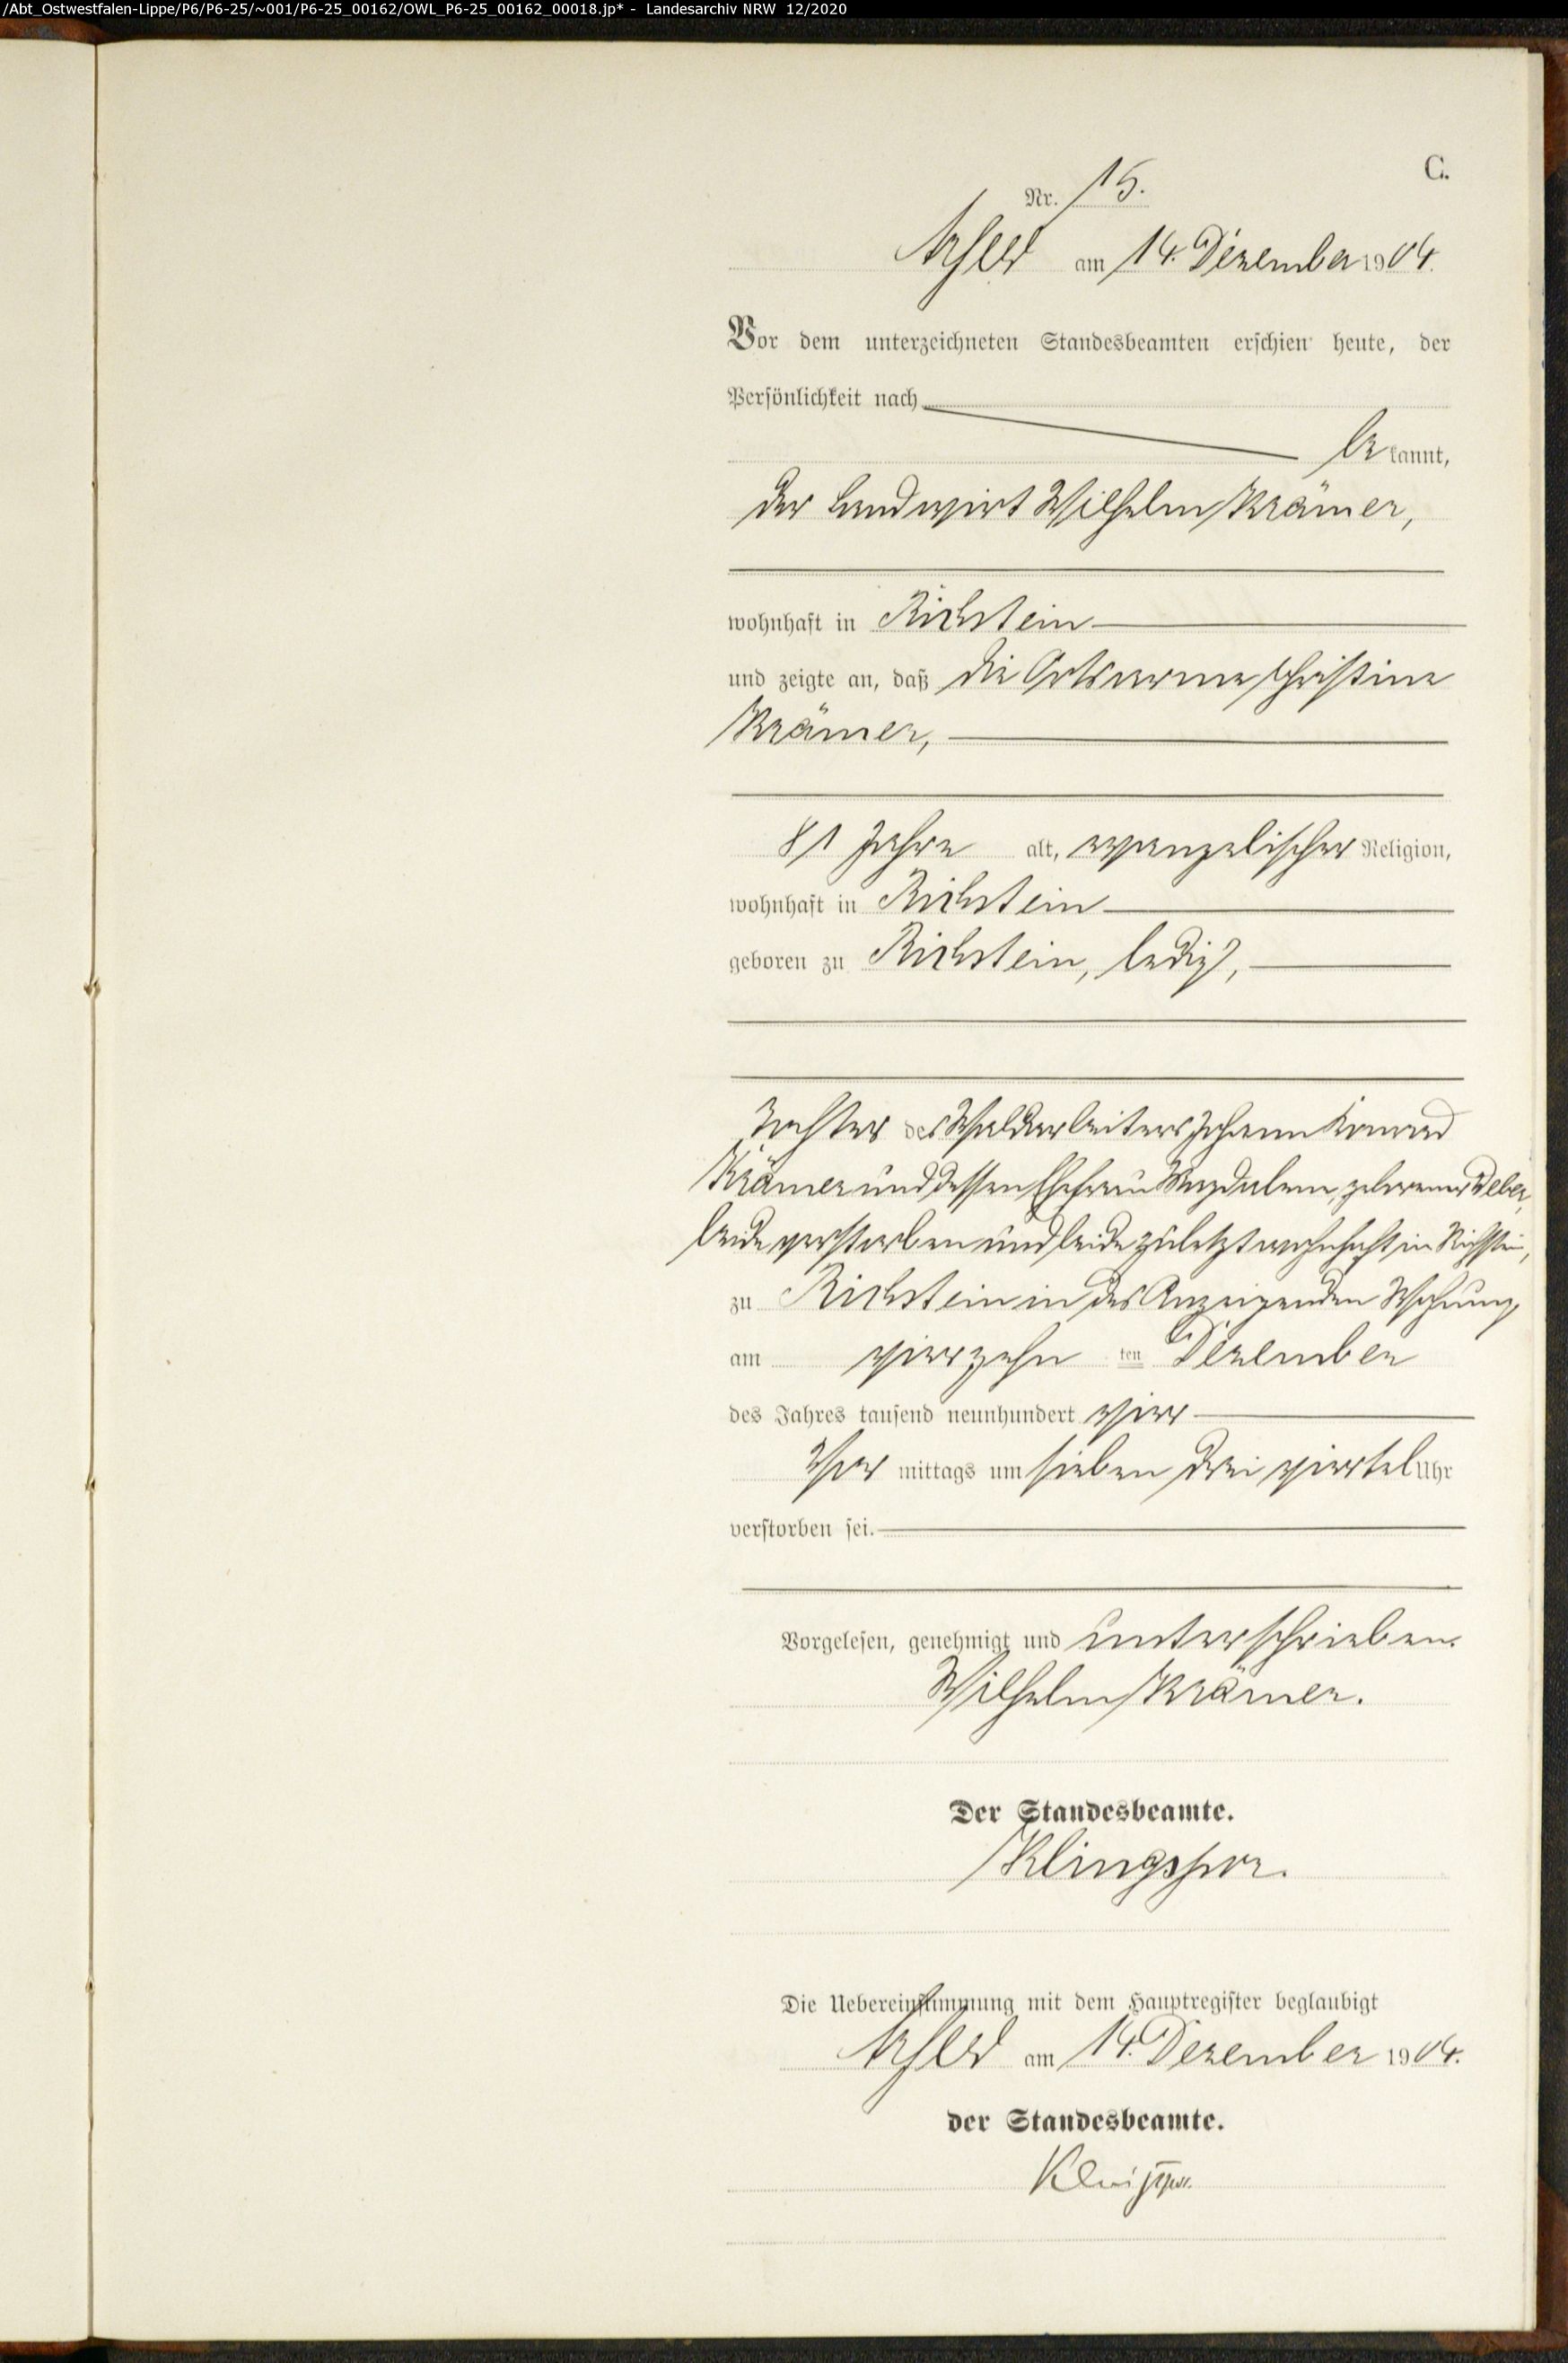 /Abt_Ostwestfalen-Lippe/P6/P6-25/~001/P6-25_00162/OWL_P6-25_00162_00018.jp* - Landesarchiv NRW 12/2020
C.
Nr. 15.
Arfeld am 14. Dezember 1904.
Vor dem unterzeichneten Standesbeamten erschien heute, der
Persönlichkeit nach
bekannt,
der Landwirt Wilhelm Krämer,
wohnhaft in Richstein
und zeigte an, daß die Ortsarme Christine
Krämer,
81 Jahre alt, evangelischer Religion,
wohnhaft in Richstein
geboren zu Richstein, ledig,
Tochter des Waldarbeiters Johann Konrad
Krämer und dessen Ehefrau Magdalena, geborener Weber,
beide verstorben und beide zuletzt wohnhaft in Richstein,
zu Richstein in des Anzeigenden Wohnung,
am vierzehn ten Dezember
des Jahres tausend neunhundert vier
Vor mittags um sieben drei viertel Uhr
verstorben sei.
Vorgelesen, genehmigt und unterschrieben.
Wilhelm Krämer.
Der Standesbeamte.
Klingspor.
Die Uebereinstimmung mit dem Hauptregister beglaubigt
Arfeld am 14. Dezember 1904.
der Standesbeamte.
Klingspor.